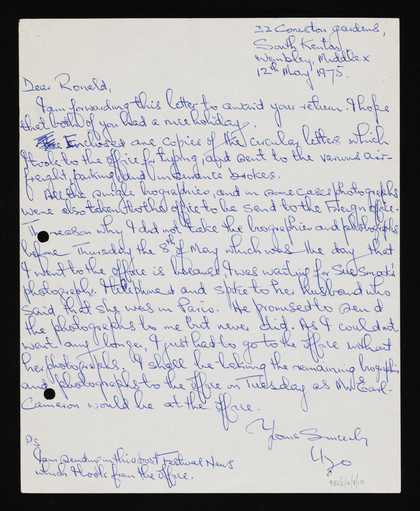 22 Coniston Gardens,
South Kenton
Wembley, Middlesex
12th May 1975.
Dear Ronald,
I am forwarding this letter to await your return. I hope
that both of you had a nice holiday.
Enclosed are copies of the circular letters which
I took to the office for typing, and sent to the various air-
freight, packing and insurance brokers.
All the judges biographies, and in some cases photographs
were also taken to the office to be sent to the Foreign office.
The reason why I did not take the biographies and photographs
before Thursday the 8th of May which was the day that
I went to the office is because I was waiting for Sue Smock's
photographs. I telephoned and spoke to her husband who
said that she was in Paris. He promised to send
the photographs to me but never did. As I couldn't
wait any longer, I just had to go to the office without
her photographs. I shall be taking the remaining biographies
and photographs to the office on Tuesday as Mr Earl-
Cameron would be at the office.
Yours Sincerely
Uzo
Ps
I am sending in this post Festival News
which I took from the office.